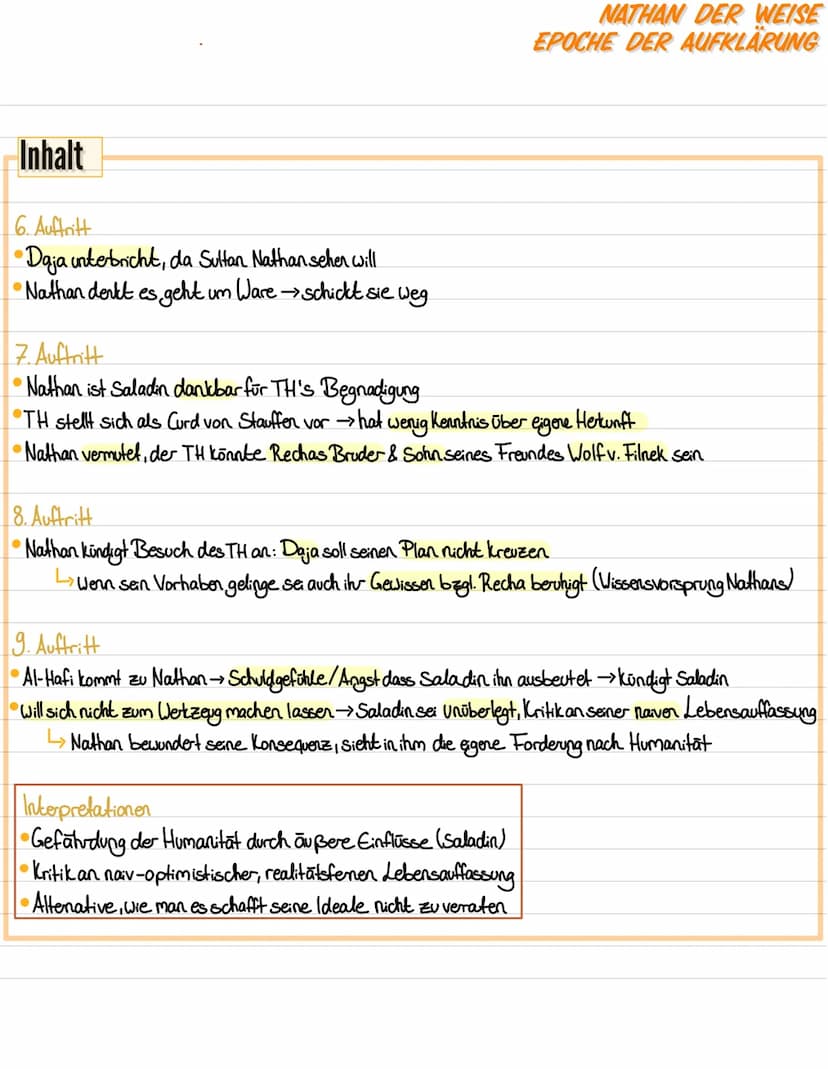 NATHAN DER WEISE
EPOCHE DER AUFKLÄRUNG
Inhalt
6. Auftritt
• Daja unterbricht, da Sultan Nathan sehen will
• Nathan denkt es geht um Ware → schickt sie weg
7. Auftritt
• Nathan ist Saladin dankbar für TH's Begnadigung
• TH stellt sich als Curd von Stauffen vor → hat wenig Kenntnis über eigene Herkunft
• Nathan vermutet, der TH könnte Rechas Bruder & Sohn seines Freundes Wolf v. Filnek sein
8. Auftritt
• Nathan kündigt Besuch des TH an: Daja soll seinen Plan nicht kreuzen
↳ Wenn sein Vorhaben gelinge sei auch ihr Gewissen bzgl. Recha beruhigt (Wissensvorsprung Nathans)
9. Auftritt
• Al-Hafi kommt zu Nathan → Schuldgefühle/Angst dass Saladin ihn ausbeutet → kündigt Saladin
• Will sich nicht zum Werkzeug machen lassen → Saladin sei unüberlegt, Kritik an seiner naiven Lebensauffassung
↳ Nathan bewundert seine Konsequenz, sieht in ihm die eigene Forderung nach Humanität
Interpretationen
• Gefährdung der Humanität durch äußere Einflüsse (Saladin)
• Kritik an naiv-optimistischer, realitätsfernen Lebensauffassung
• Altenative, wie man es schafft seine Ideale nicht zu verraten